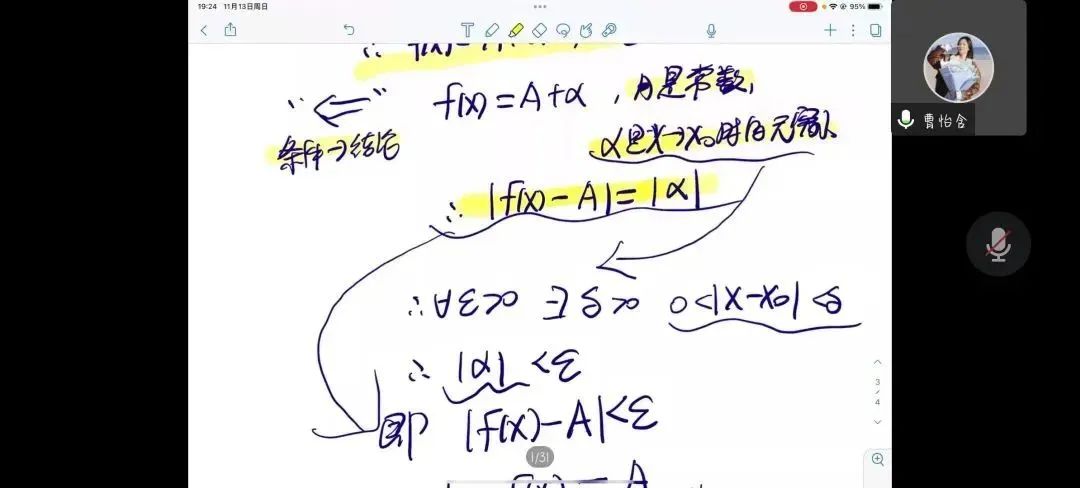 19:24 11月13日周日
95%
∴ f(x)=
"⇐" f(x)=A+α，A是常数，
条件→结论 α是x→x₀时的无穷小
∴ |f(x)-A|=|α|
∴ ∀ε>0 ∃δ>0 0<|x-x₀|<δ
∴ |α|<ε
即 |f(x)-A|<ε
1/31
3/4
曹怡含